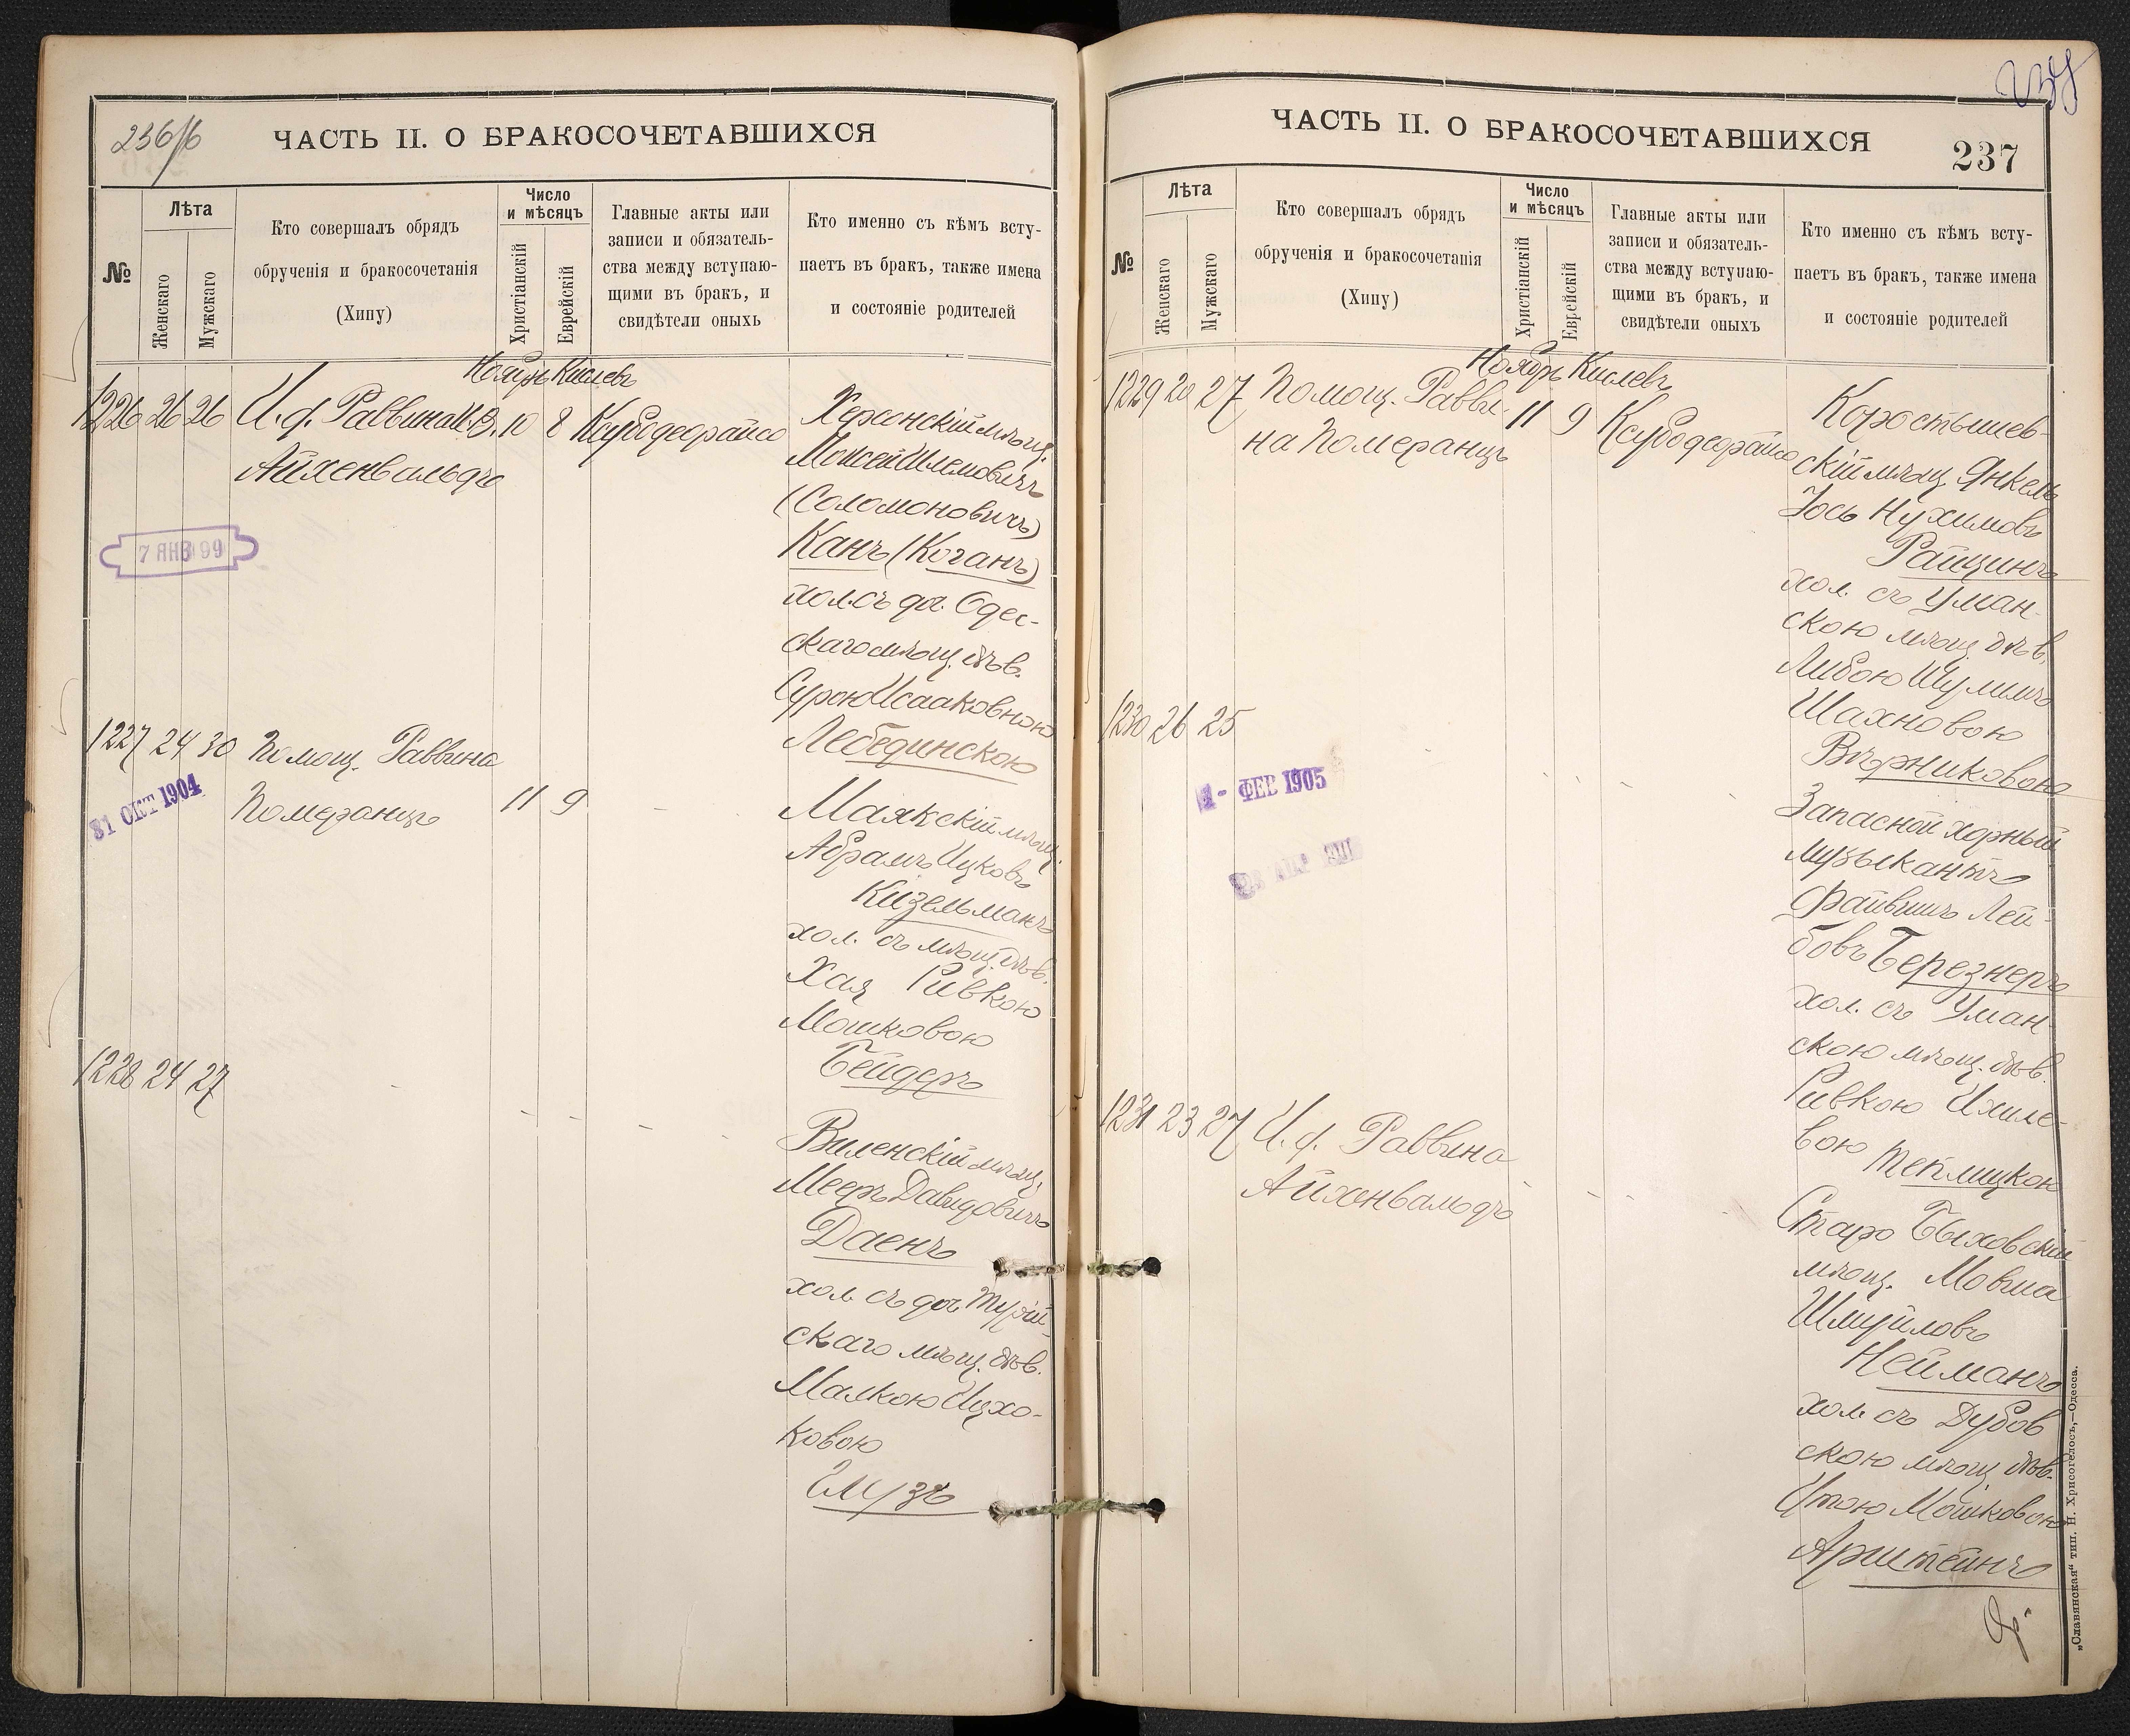 236/б
ЧАСТЬ II. О БРАКОСОЧЕТАВШИХСЯ
№
Лѣта
Женскаго
Мужскаго
Кто совершалъ обрядъ
обрученія и бракосочетанія
(Хипу)
Число
и мѣсяцъ
Христіанскій
Еврейскій
Главные акты или
записи и обязатель-
ства между вступаю-
щими въ бракъ, и
свидѣтели оныхъ
Кто именно съ кѣмъ всту-
паетъ въ бракъ, также имена
и состояніе родителей
Ноябрь Кислевъ
1226 26 26 И. ф. Раввина И.В. 10 8 Ксубодеорайсо
Айхенвальдъ
Херсонскій мѣщ.
Моисей Шлемовичъ
(Соломоновичъ)
Канъ (Коганъ)
хол. съ доч. Одес-
скаго мѣщ. дѣв.
Сурою Исааковною
Лебединскою
7 ЯНВ 99
1227 24 30 Помощ. Раввина
Померанцъ 11 9 -
31 ОКТ 1904
Маякскій мѣщ.
Абрамъ Ицковъ
Кизельманъ
хол. съ мѣщ. дѣв.
Хая Ривкою
Мошковою
Бейдеръ
1228 24 27 - - - - -
Виленскій мѣщ.
Мееръ Давидовичъ
Даенъ
хол. съ доч. Турій-
скаго мѣщ. дѣв.
Малкою Ицхо-
ковою
Глузъ
ЧАСТЬ II. О БРАКОСОЧЕТАВШИХСЯ
237
№
Лѣта
Женскаго
Мужскаго
Кто совершалъ обрядъ
обрученія и бракосочетанія
(Хипу)
Число
и мѣсяцъ
Христіанскій
Еврейскій
Главные акты или
записи и обязатель-
ства между вступаю-
щими въ бракъ, и
свидѣтели оныхъ
Кто именно съ кѣмъ всту-
паетъ въ бракъ, также имена
и состояніе родителей
Ноябрь Кислевъ
1229 20 27 Помощ. Равви- 11 9 Ксубодеорайсо
на Померанцъ
Коростышев-
скій мѣщ. Янкель
Іось Нухимовъ
Райцинъ
хол. съ Уман-
скою мѣщ. дѣв.
Либою Шулимъ
Шахновою
Вѣрниковою
1230 26 25 - - - - -
1 - ФЕВ 1905
Запасной хорный
музыкантъ
Файвишъ Лей-
бовъ Березнеръ
хол. съ Уман-
скою мѣщ. дѣв.
Ривкою Ихиле-
вою Теплицкою
1231 23 27 И. ф. Раввина
Айхенвальдъ - - -
Старо Быховскій
мѣщ. Мовша
Шмуйловъ
Нейманъ
хол. съ Дубов
скою мѣщ. дѣв.
Итою Мошковою
Арштейнъ
„Славянская“ тип. Н. Хрисогелосъ,—Одесса.